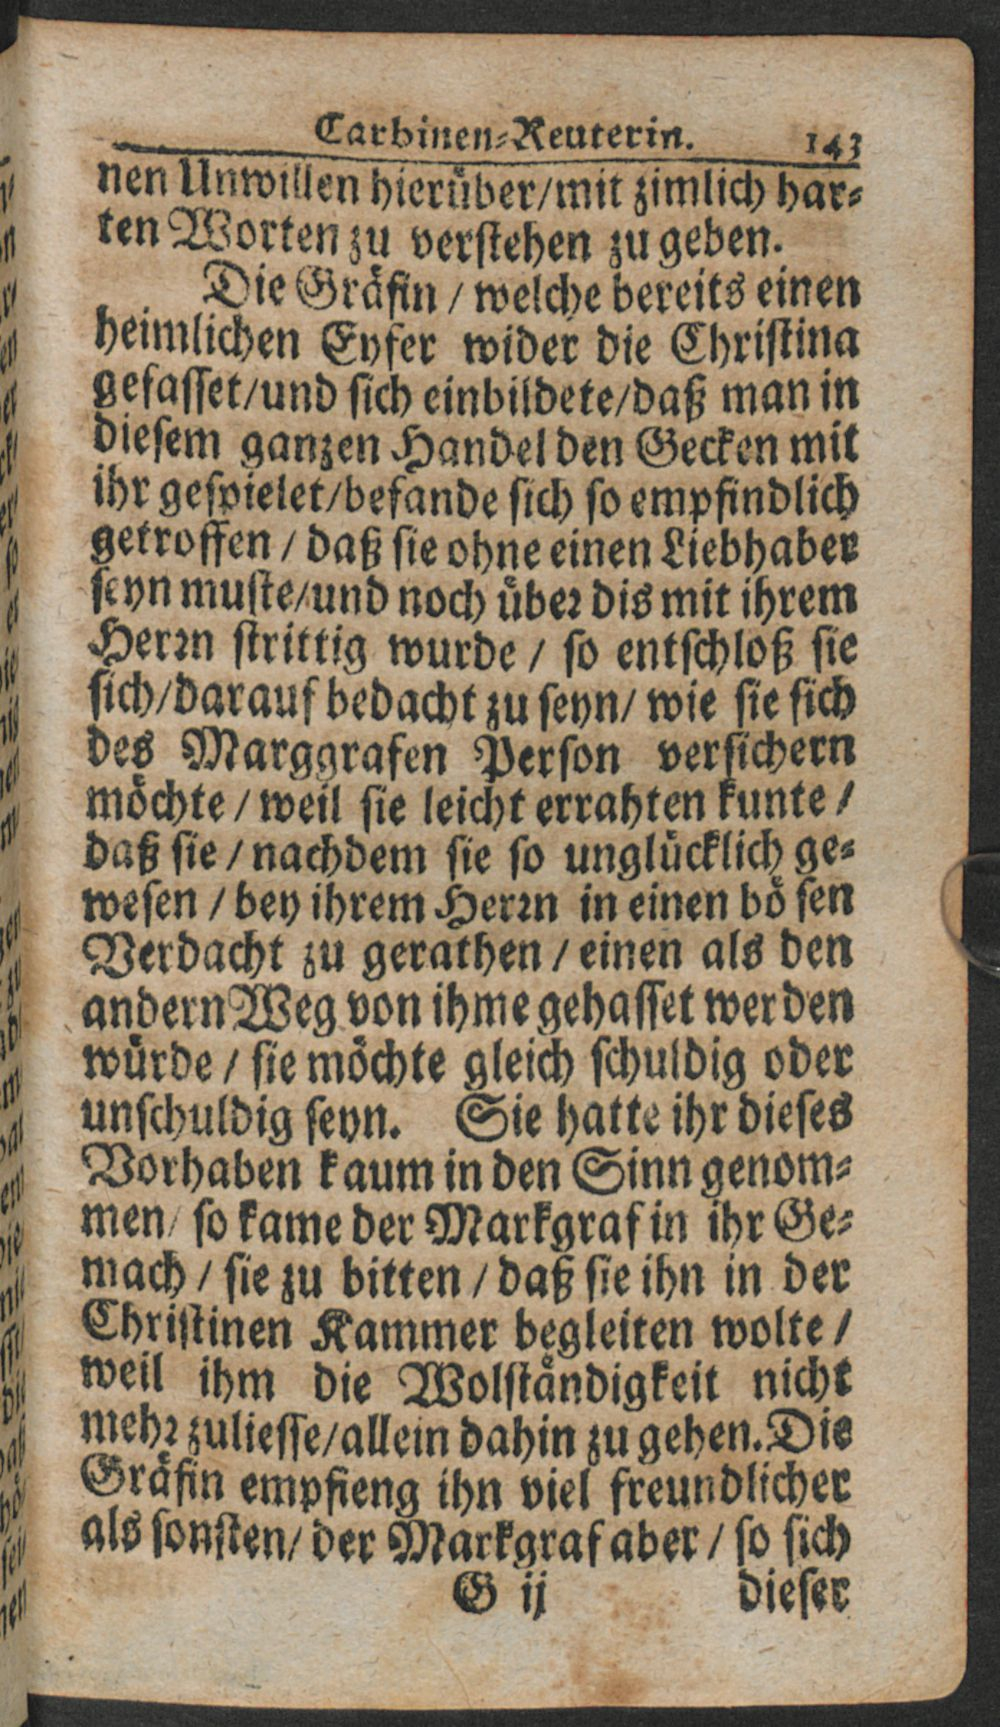 Carbinen-Reuterin. 143
nen Unwillen hierüber/mit zimlich har-
ten Worten zu verstehen zu geben.
Die Gräfin / welche bereits einen
heimlichen Eyfer wider die Christina
gefasset/und sich einbildete/daß man in
diesem ganzen Handel den Gecken mit
ihr gespielet/befande sich so empfindlich
getroffen / daß sie ohne einen Liebhaber
seyn muste/und noch über dis mit ihrem
Herrn strittig wurde / so entschloß sie
sich/darauf bedacht zu seyn/ wie sie sich
des Marggrafen Person versichern
möchte / weil sie leicht errahten kunte /
daß sie / nachdem sie so unglücklich ge-
wesen / bey ihrem Herrn in einen bösen
Verdacht zu gerathen / einen als den
andern Weg von ihme gehasset werden
würde / sie möchte gleich schuldig oder
unschuldig seyn. Sie hatte ihr dieses
Vorhaben kaum in den Sinn genom-
men/ so kame der Markgraf in ihr Ge-
mach / sie zu bitten / daß sie ihn in der
Christinen Kammer begleiten wolte /
weil ihm die Wolständigkeit nicht
mehr zuliesse/allein dahin zu gehen. Die
Gräfin empfieng ihn viel freundlicher
als sonsten/ der Markgraf aber / so sich
G ij dieser